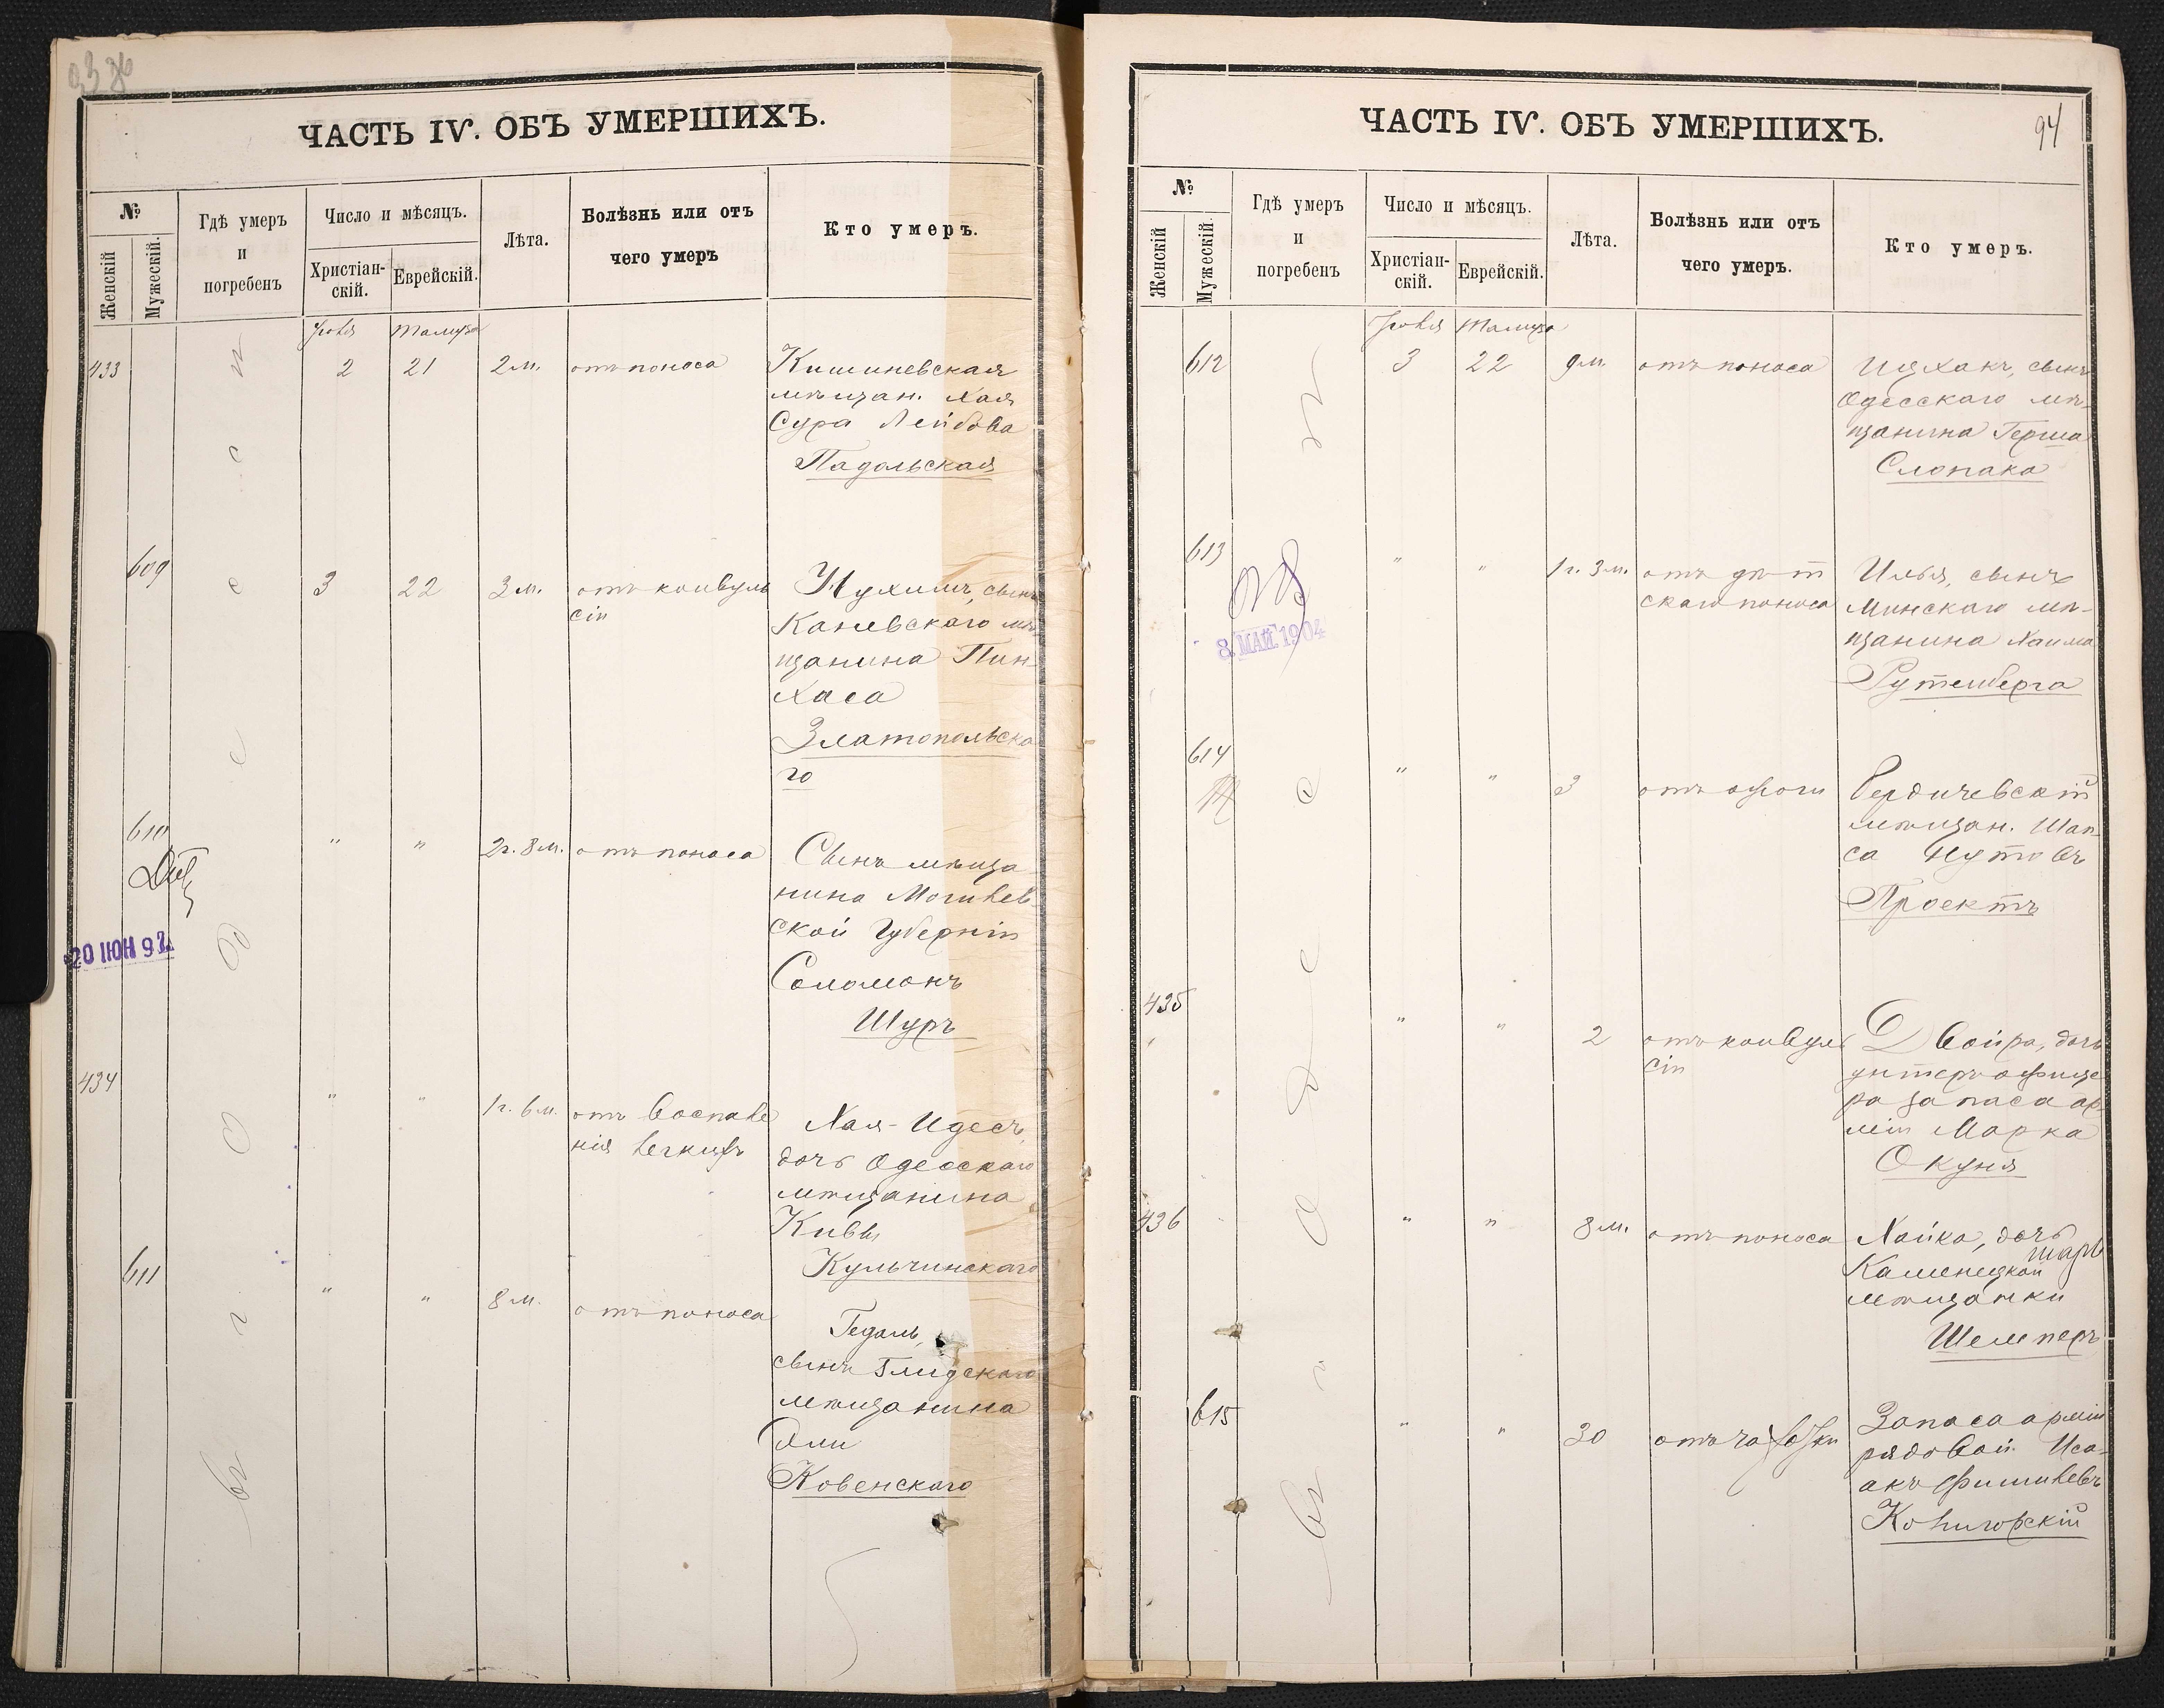 ЧАСТЬ IV. ОБЪ УМЕРШИХЪ.
№
Женскій
Мужескій.
Гдѣ умеръ
и
погребенъ
Число и мѣсяцъ.
Христіан-
скій.
Еврейскій.
Лѣта.
Болѣзнь или отъ
чего умеръ
Кто умеръ.
въ Одессѣ
Іюля Тамуза
433 2 21 2 м. отъ поноса Кишиневская
мѣщан. Хая
Сура Лейбова
Падольская
609 3 22 3 м. отъ конвуль
сіи
Нухимъ, сынъ
Каневскаго мѣ-
щанина Пин-
хаса
Златопольска
го
610 " " 2 г. 8 м. отъ поноса Сынъ мѣща
нина Могилев-
ской Губерніи
Соломонъ
Шуръ
20 ІЮН 97.
434 " " 1 г. 6 м. отъ воспале
нія легкихъ
Хая-Идесъ,
дочь Одесскаго
мѣщанина
Кивы
Кульчинскаго
611 " " 8 м. отъ поноса Гедаль,
сынъ
мѣщанина
Эли
Ковенскаго
ЧАСТЬ IV. ОБЪ УМЕРШИХЪ.
94
№
Женскій
Мужескій.
Гдѣ умеръ
и
погребенъ
Число и мѣсяцъ.
Христіан-
скій.
Еврейскій.
Лѣта.
Болѣзнь или отъ
чего умеръ.
Кто умеръ.
въ Одессѣ
Іюля Тамуза
612 3 22 9 м. отъ поноса Ицхакъ, сынъ
Одесскаго мѣ-
щанина Герша
Слопака
613 " " 1 г. 3 м. отъ дѣт
скаго поноса
Илья, сынъ
Минскаго мѣ-
щанина Хаима
Рутенберга
8. МАЙ. 1904
614 " " 3 Бердичевскій
мѣщан. Шап-
са Нутовъ
Проектъ
435 " " 2 отъ конвуль
сіи
Двойра, дочь
унтеръ офице
ра запаса ар-
міи Марка
Окуня
436 " " 8 м. отъ поноса Хайка, дочь
Каменецкой
мѣщанки
Шемперъ
615 " " 30 отъ чахотки Запаса арміи
рядовой Иса-
акъ Фишилевъ
Копигорскій